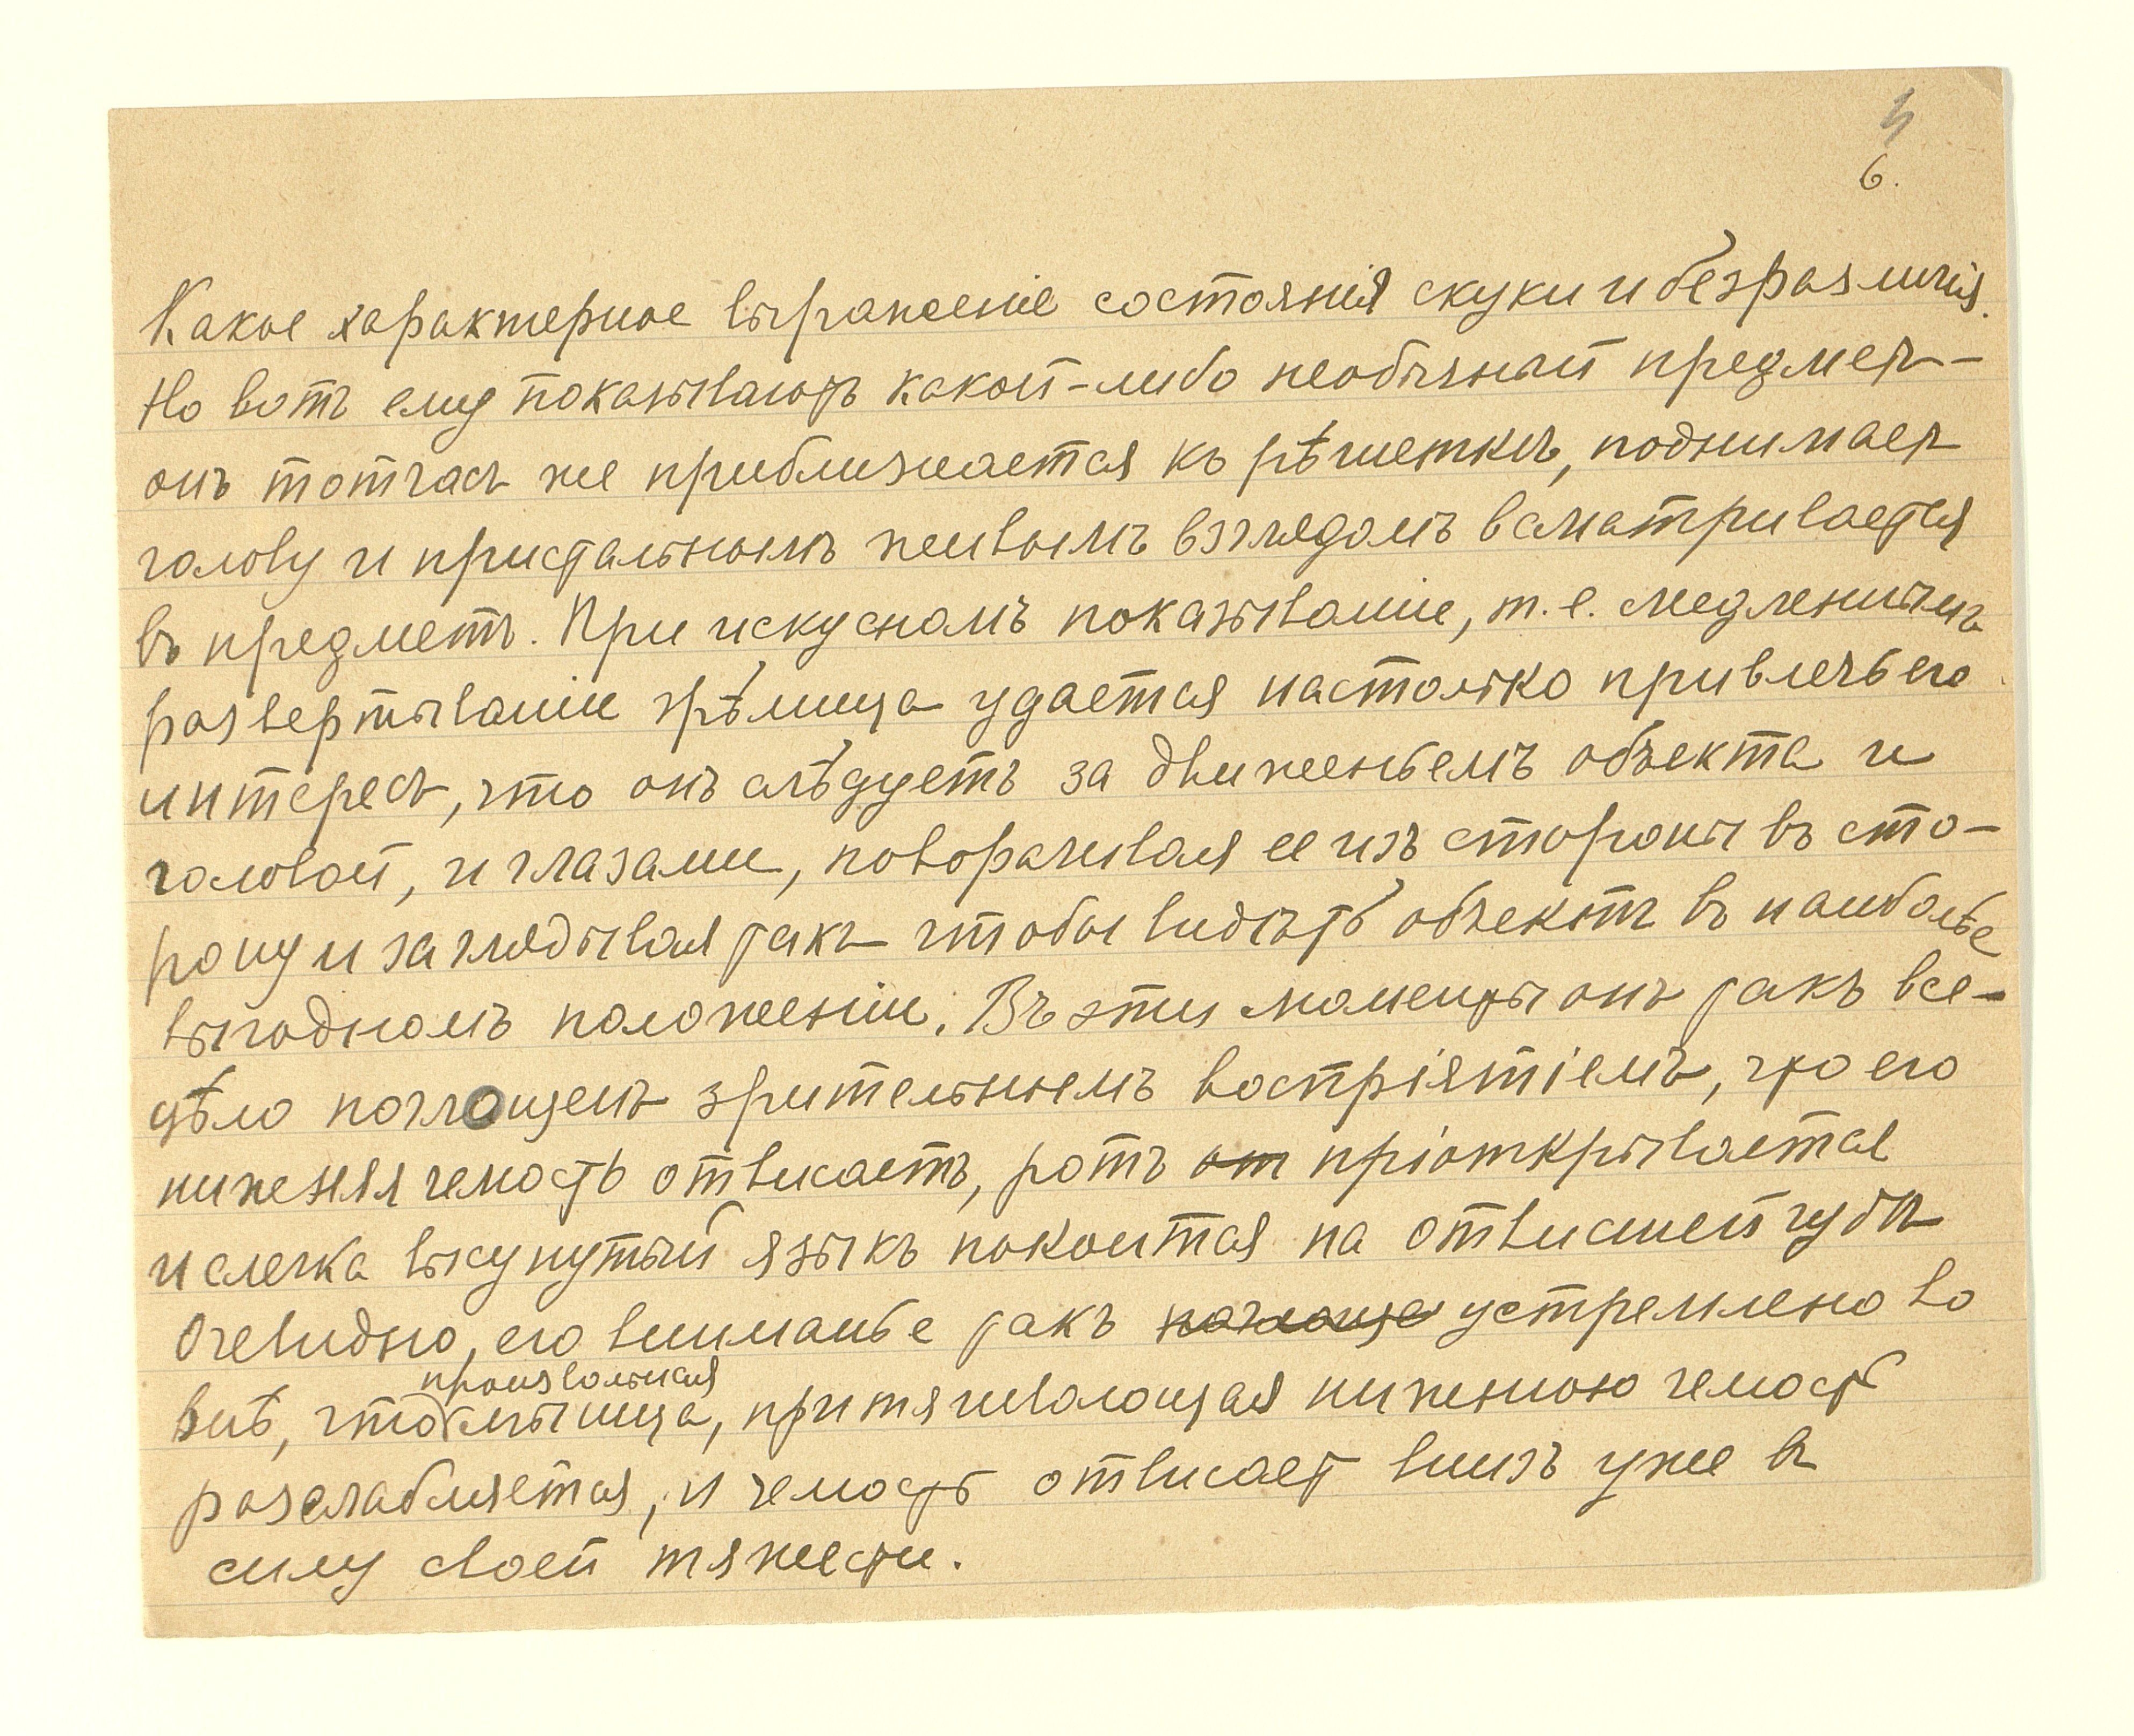 4
6.
Какое характерное выраженіе состоянія скуки и безразличія.
Но вотъ ему показываютъ какой-либо необычный предметъ-
онъ тотчасъ же приближается къ рѣшеткѣ, поднимаетъ
голову и пристальнымъ живымъ взглядомъ всматривается
въ предметъ. При искусномъ показываніи, т.е. медленномъ
развертываніи зрѣлища удается настолько привлечь его
интересъ, что онъ слѣдуетъ за движеньемъ объекта и
головой, и глазами, поворачивая ее изъ стороны въ сто-
рону и заглядывая такъ чтобы видѣть объектъ въ наиболѣе
выгодномъ положеніи. Въ эти моменты онъ такъ все-
цѣло поглощенъ зрительнымъ воспріятіемъ, что его
нижняя челюсть отвисаетъ, ротъ от пріоткрывается
и слегка высунутый языкъ покоится на отвисшей губѣ
Очевидно, его вниманье такъ поглоще устремлено во
внѣ, что произвольная мышца, притягивающая нижнюю челюсть
разслабляется, и челюсть отвисает внизъ уже въ
силу своей тяжести.